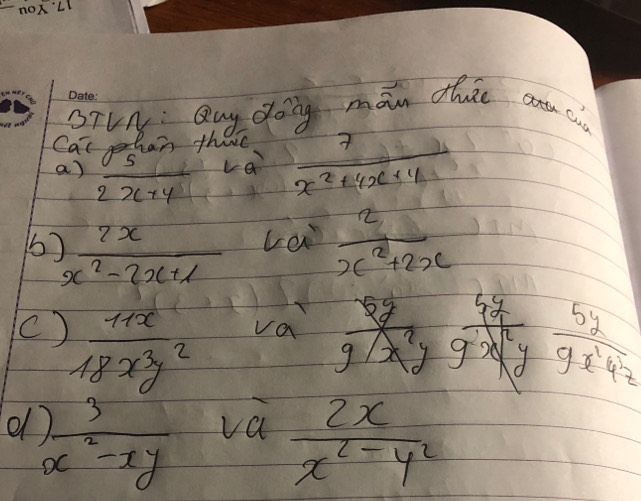 17. You
Date:
BTVN: Quy đồng mẫu thức của
Các phân thức
a) 5/(2x+4) và 7/(x²+4x+4)
b) 2x/(x²-2x+1) và 2/(x²+2x)
c) 11x/(18x³y²) và 5y/(9x²y) 5y/(9x²y) 5y/(9x²y³z)
d) 3/(x²-xy) và 2x/(x²-y²)